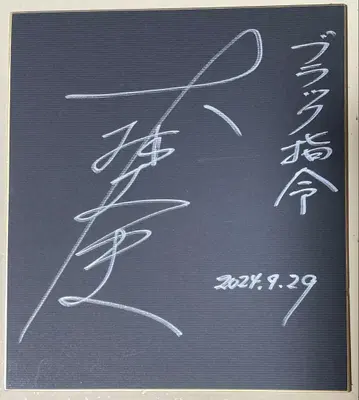 ブラック指令
大林丈史
2024.9.29